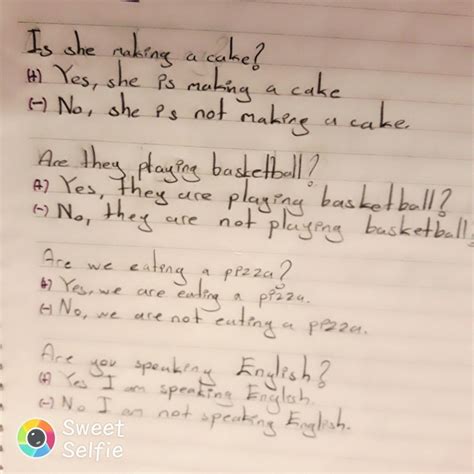 Is she making a cake?
(+) Yes, she is making a cake
(-) No, she is not making a cake.
Are they playing basketball?
(+) Yes, they are playing basketball?
(-) No, they are not playing basketball.
Are we eating a pizza?
(+) Yes, we are eating a pizza.
(-) No, we are not eating a pizza.
Are you speaking English?
(+) Yes I am speaking English.
(-) No I am not speaking English.
Sweet
Selfie